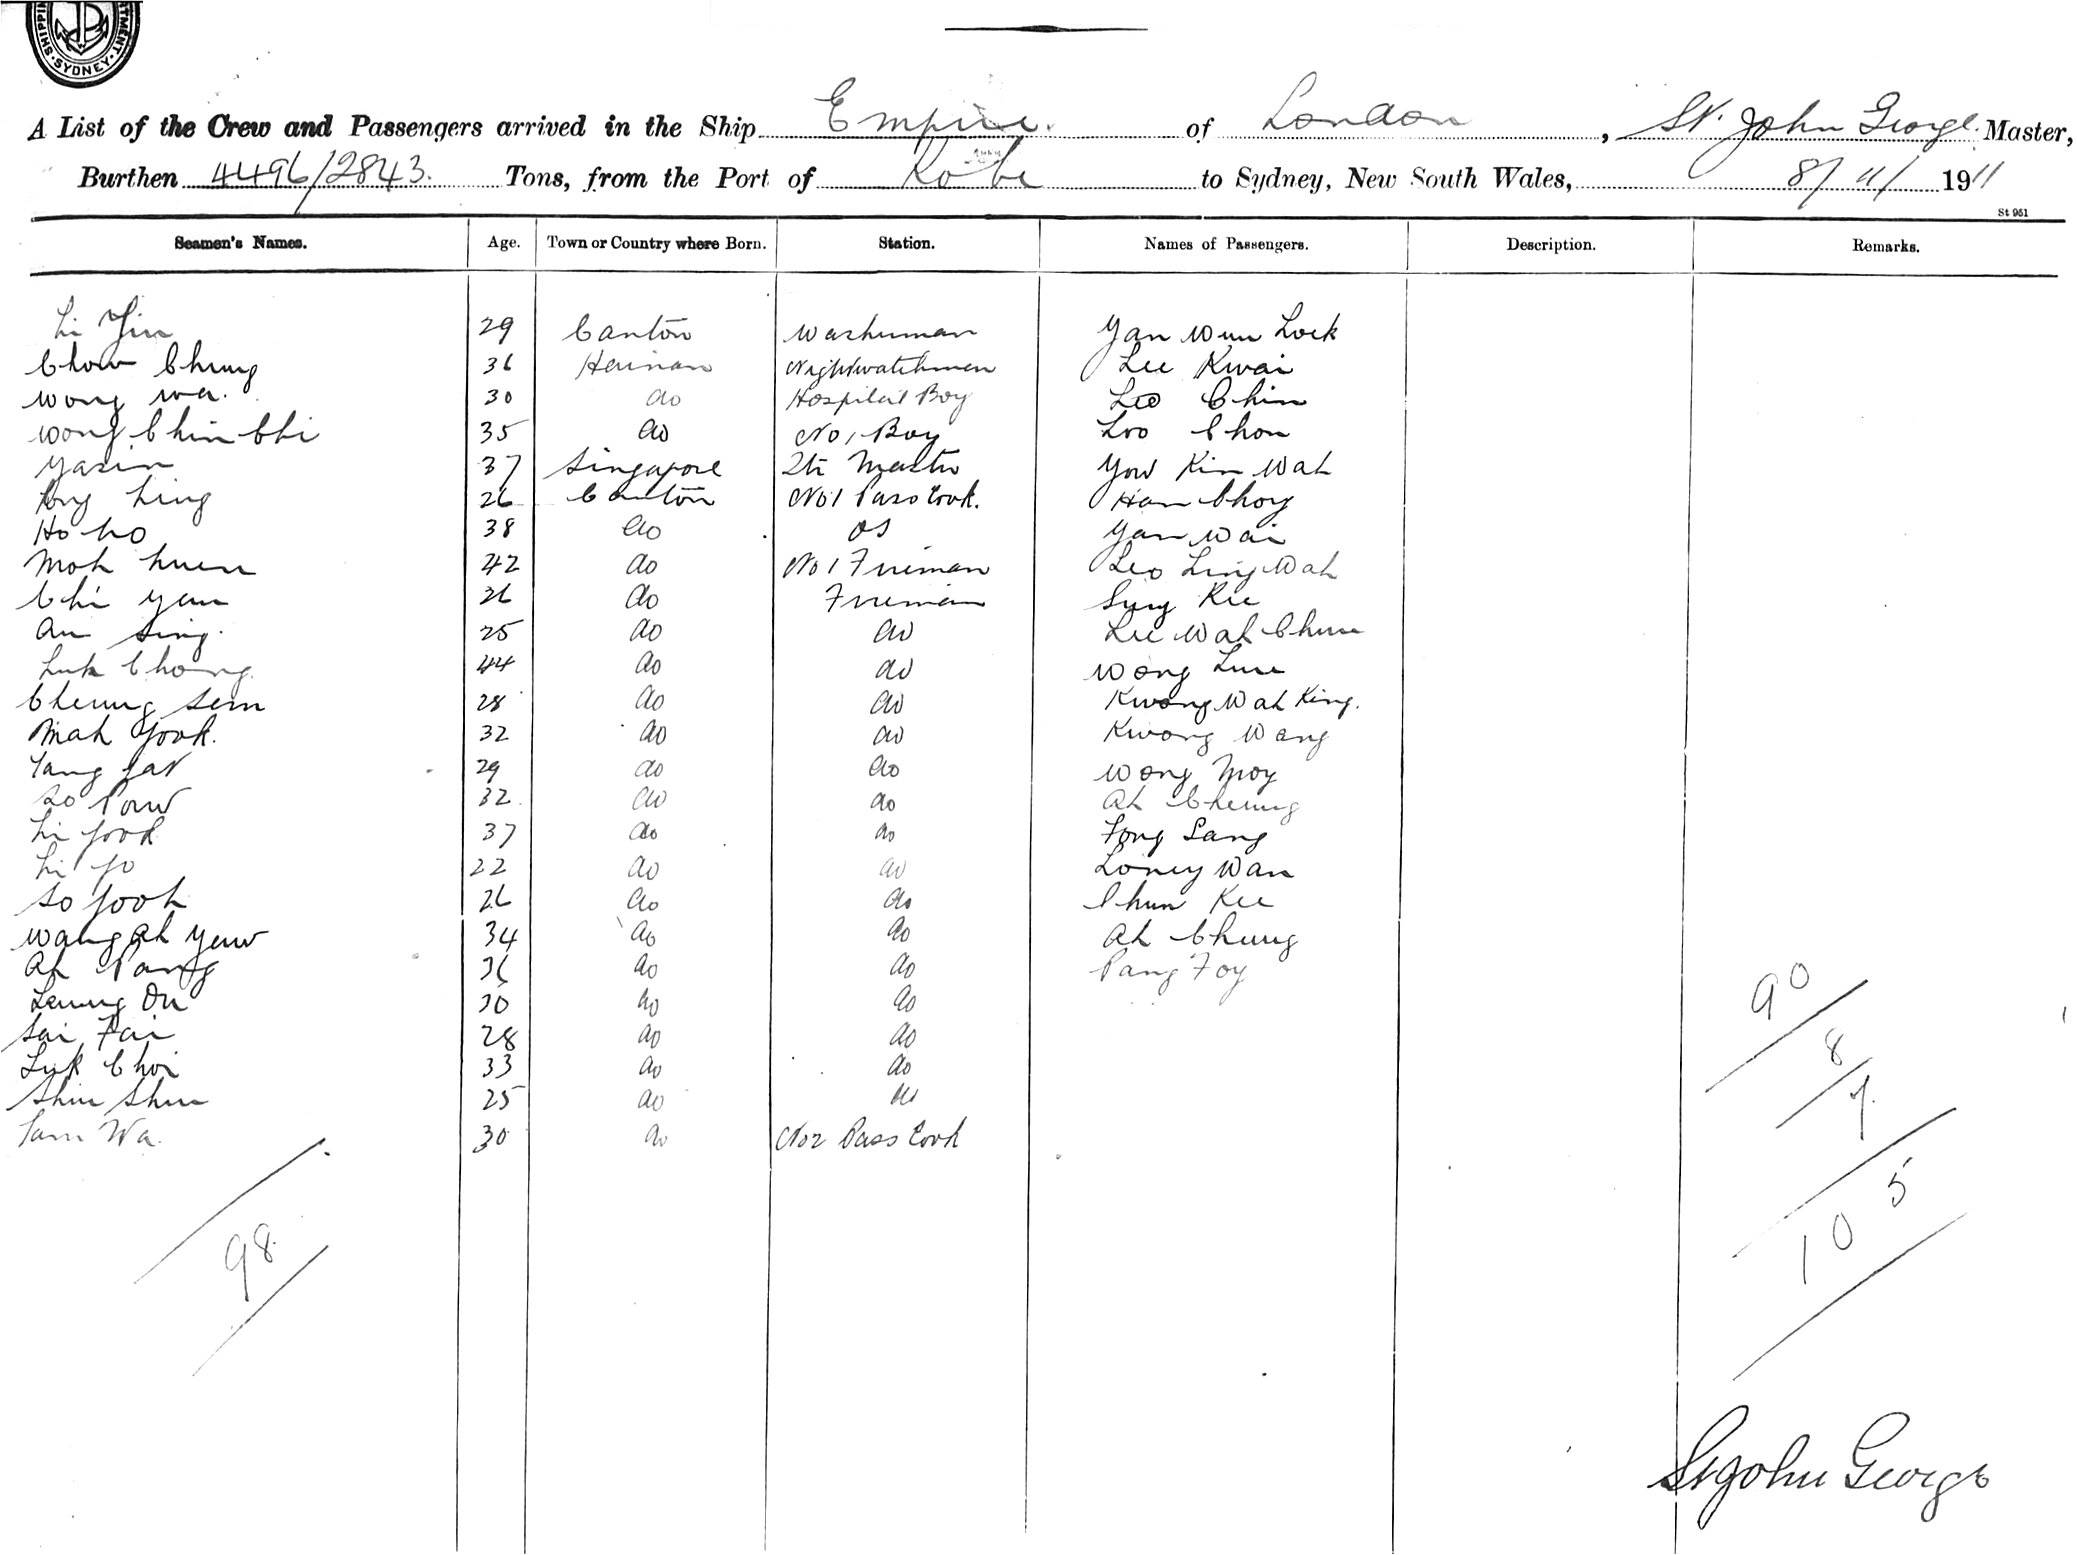 SHIPPING
DEPARTMENT
SYDNEY
A List of the Crew and Passengers arrived in the Ship Empire of London, St. John George Master,
Burthen 4496/2843. Tons, from the Port of Kobe to Sydney, New South Wales, 8/11/1911
St 951
Seamen's Names. Age. Town or Country where Born. Station. Names of Passengers. Description. Remarks.
Li Yiu 29 Canton Washuman Yan Wun Lock
Chow Chung 36 Hainan Nightwatchman Lee Kwai
Wong Wa. 30 do Hospital Boy Leo Chin
Wong Chin Chi 35 do No 1 Boy Loo Chon
Yasin 37 Singapore Qtr Master Yow Kim Wah
Ling 26 Canton No 1 Pass Cook. Han Choy
Ho Ho 38 do OS Yan Wai
Mok Kuen 42 do No 1 Fireman Leo Ling Wah
Chi Yau 26 do Fireman Sing Kee
Au Sing. 25 do do Lee Wah Chun
Luk Chong. 44 do do Wong Lum
Cheung Sem 28 do do Kwong Wah King.
Mah Yook. 32 do do Kwong Wang
Tang Yat 29 do do Wong Moy
So Pow 32 do do Ah Cheung
Li Yook 37 do do Fong Sang
Li Yo 22 do do Loney Wan
So Yook 26 do do Chun Kee
Wang Ah Yow 34 do do Ah Chung
Ah Pang 36 do do Pang Foy
Leung On 30 do do
Sai Fai 28 do do
Luk Choi 33 do do
Shiu Shiu 25 do do
Tam Wa. 30 do No 2 Pass Cook
90
8
7
98
105
St John George